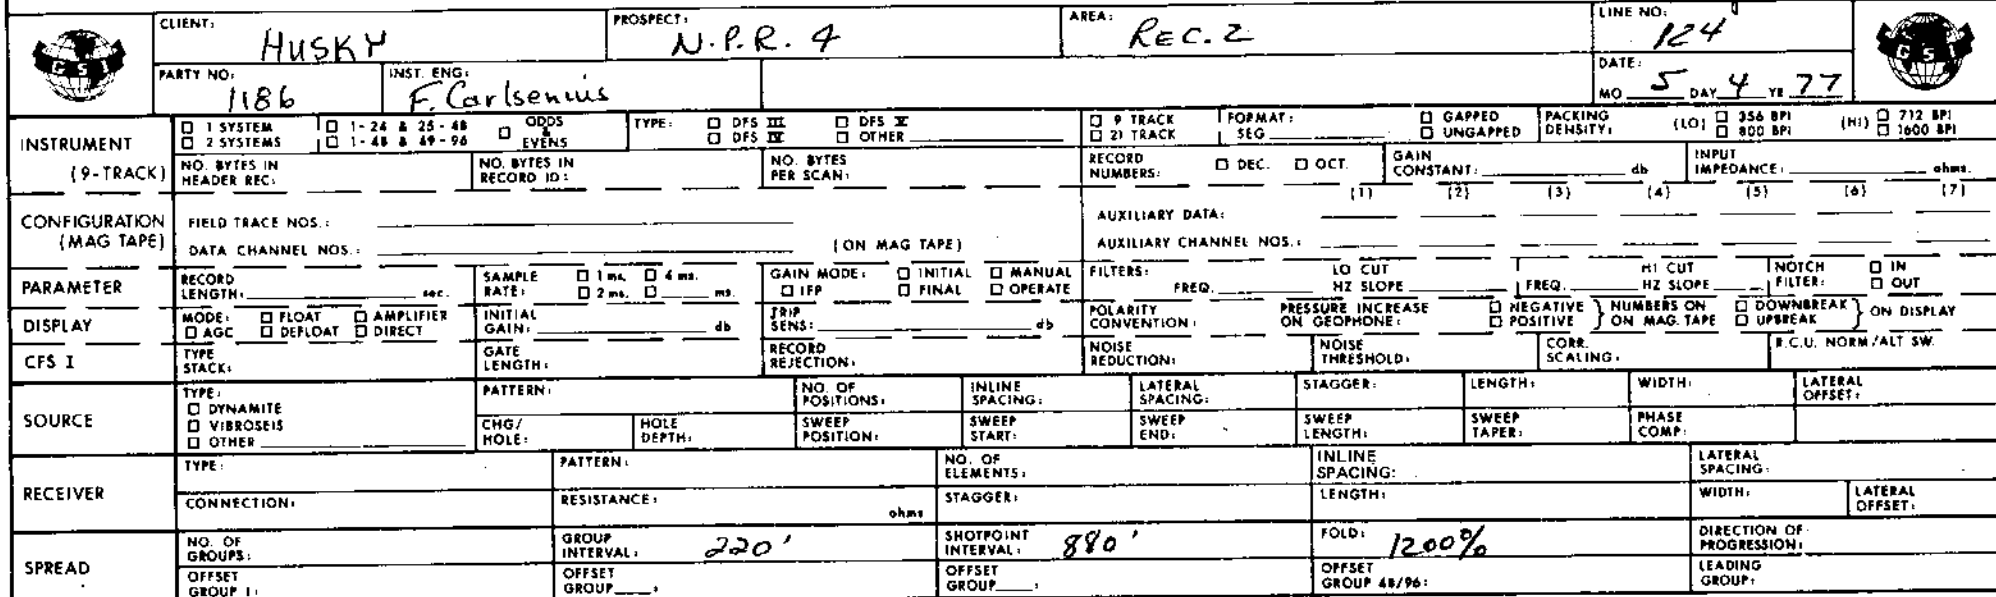 CLIENT: HUSKY PROSPECT: N.P.R. 4 AREA: REC. 2 LINE NO: 124
GSI GSI
PARTY NO: 1186 INST. ENG: F. Carlsenius DATE: MO 5 DAY 4 YR 77
INSTRUMENT (9-TRACK) □ 1 SYSTEM □ 1-24 & 25-48 □ ODDS & EVENS TYPE: □ DFS III □ DFS V □ 9 TRACK FORMAT: □ GAPPED PACKING DENSITY: (LO) □ 356 BPI (HI) □ 712 BPI
□ 2 SYSTEMS □ 1-48 & 49-96 □ DFS IV □ OTHER □ 21 TRACK SEG □ UNGAPPED □ 800 BPI □ 1600 BPI
NO. BYTES IN HEADER REC: NO. BYTES IN RECORD ID: NO. BYTES PER SCAN: RECORD NUMBERS: □ DEC. □ OCT. GAIN CONSTANT: db INPUT IMPEDANCE: ohms.
(1) (2) (3) (4) (5) (6) (7)
CONFIGURATION (MAG TAPE) FIELD TRACE NOS.: AUXILIARY DATA:
DATA CHANNEL NOS.: (ON MAG TAPE) AUXILIARY CHANNEL NOS.:
PARAMETER RECORD LENGTH: sec. SAMPLE RATE: □ 1 ms. □ 4 ms. □ 2 ms. □ ms. GAIN MODE: □ INITIAL □ MANUAL □ IFP □ FINAL □ OPERATE FILTERS: FREQ. LO CUT HZ SLOPE FREQ. HI CUT HZ SLOPE NOTCH FILTER: □ IN □ OUT
DISPLAY MODE: □ FLOAT □ AMPLIFIER □ AGC □ DEFLOAT □ DIRECT INITIAL GAIN: db TRIP SENS: db POLARITY CONVENTION: PRESSURE INCREASE ON GEOPHONE: □ NEGATIVE □ POSITIVE } NUMBERS ON ON MAG. TAPE □ DOWNBREAK □ UPBREAK } ON DISPLAY
CFS I TYPE STACK: GATE LENGTH: RECORD REJECTION: NOISE REDUCTION: NOISE THRESHOLD: CORR. SCALING: R.C.U. NORM/ALT SW.
SOURCE TYPE: □ DYNAMITE □ VIBROSEIS □ OTHER PATTERN: NO. OF POSITIONS: INLINE SPACING: LATERAL SPACING: STAGGER: LENGTH: WIDTH: LATERAL OFFSET:
CHG/HOLE: HOLE DEPTH: SWEEP POSITION: SWEEP START: SWEEP END: SWEEP LENGTH: SWEEP TAPER: PHASE COMP:
RECEIVER TYPE: PATTERN: NO. OF ELEMENTS: INLINE SPACING: LATERAL SPACING:
CONNECTION: RESISTANCE: ohms STAGGER: LENGTH: WIDTH: LATERAL OFFSET:
SPREAD NO. OF GROUPS: GROUP INTERVAL: 220' SHOTPOINT INTERVAL: 880' FOLD: 1200% DIRECTION OF PROGRESSION:
OFFSET GROUP 1: OFFSET GROUP____: OFFSET GROUP____: OFFSET GROUP 48/96: LEADING GROUP: